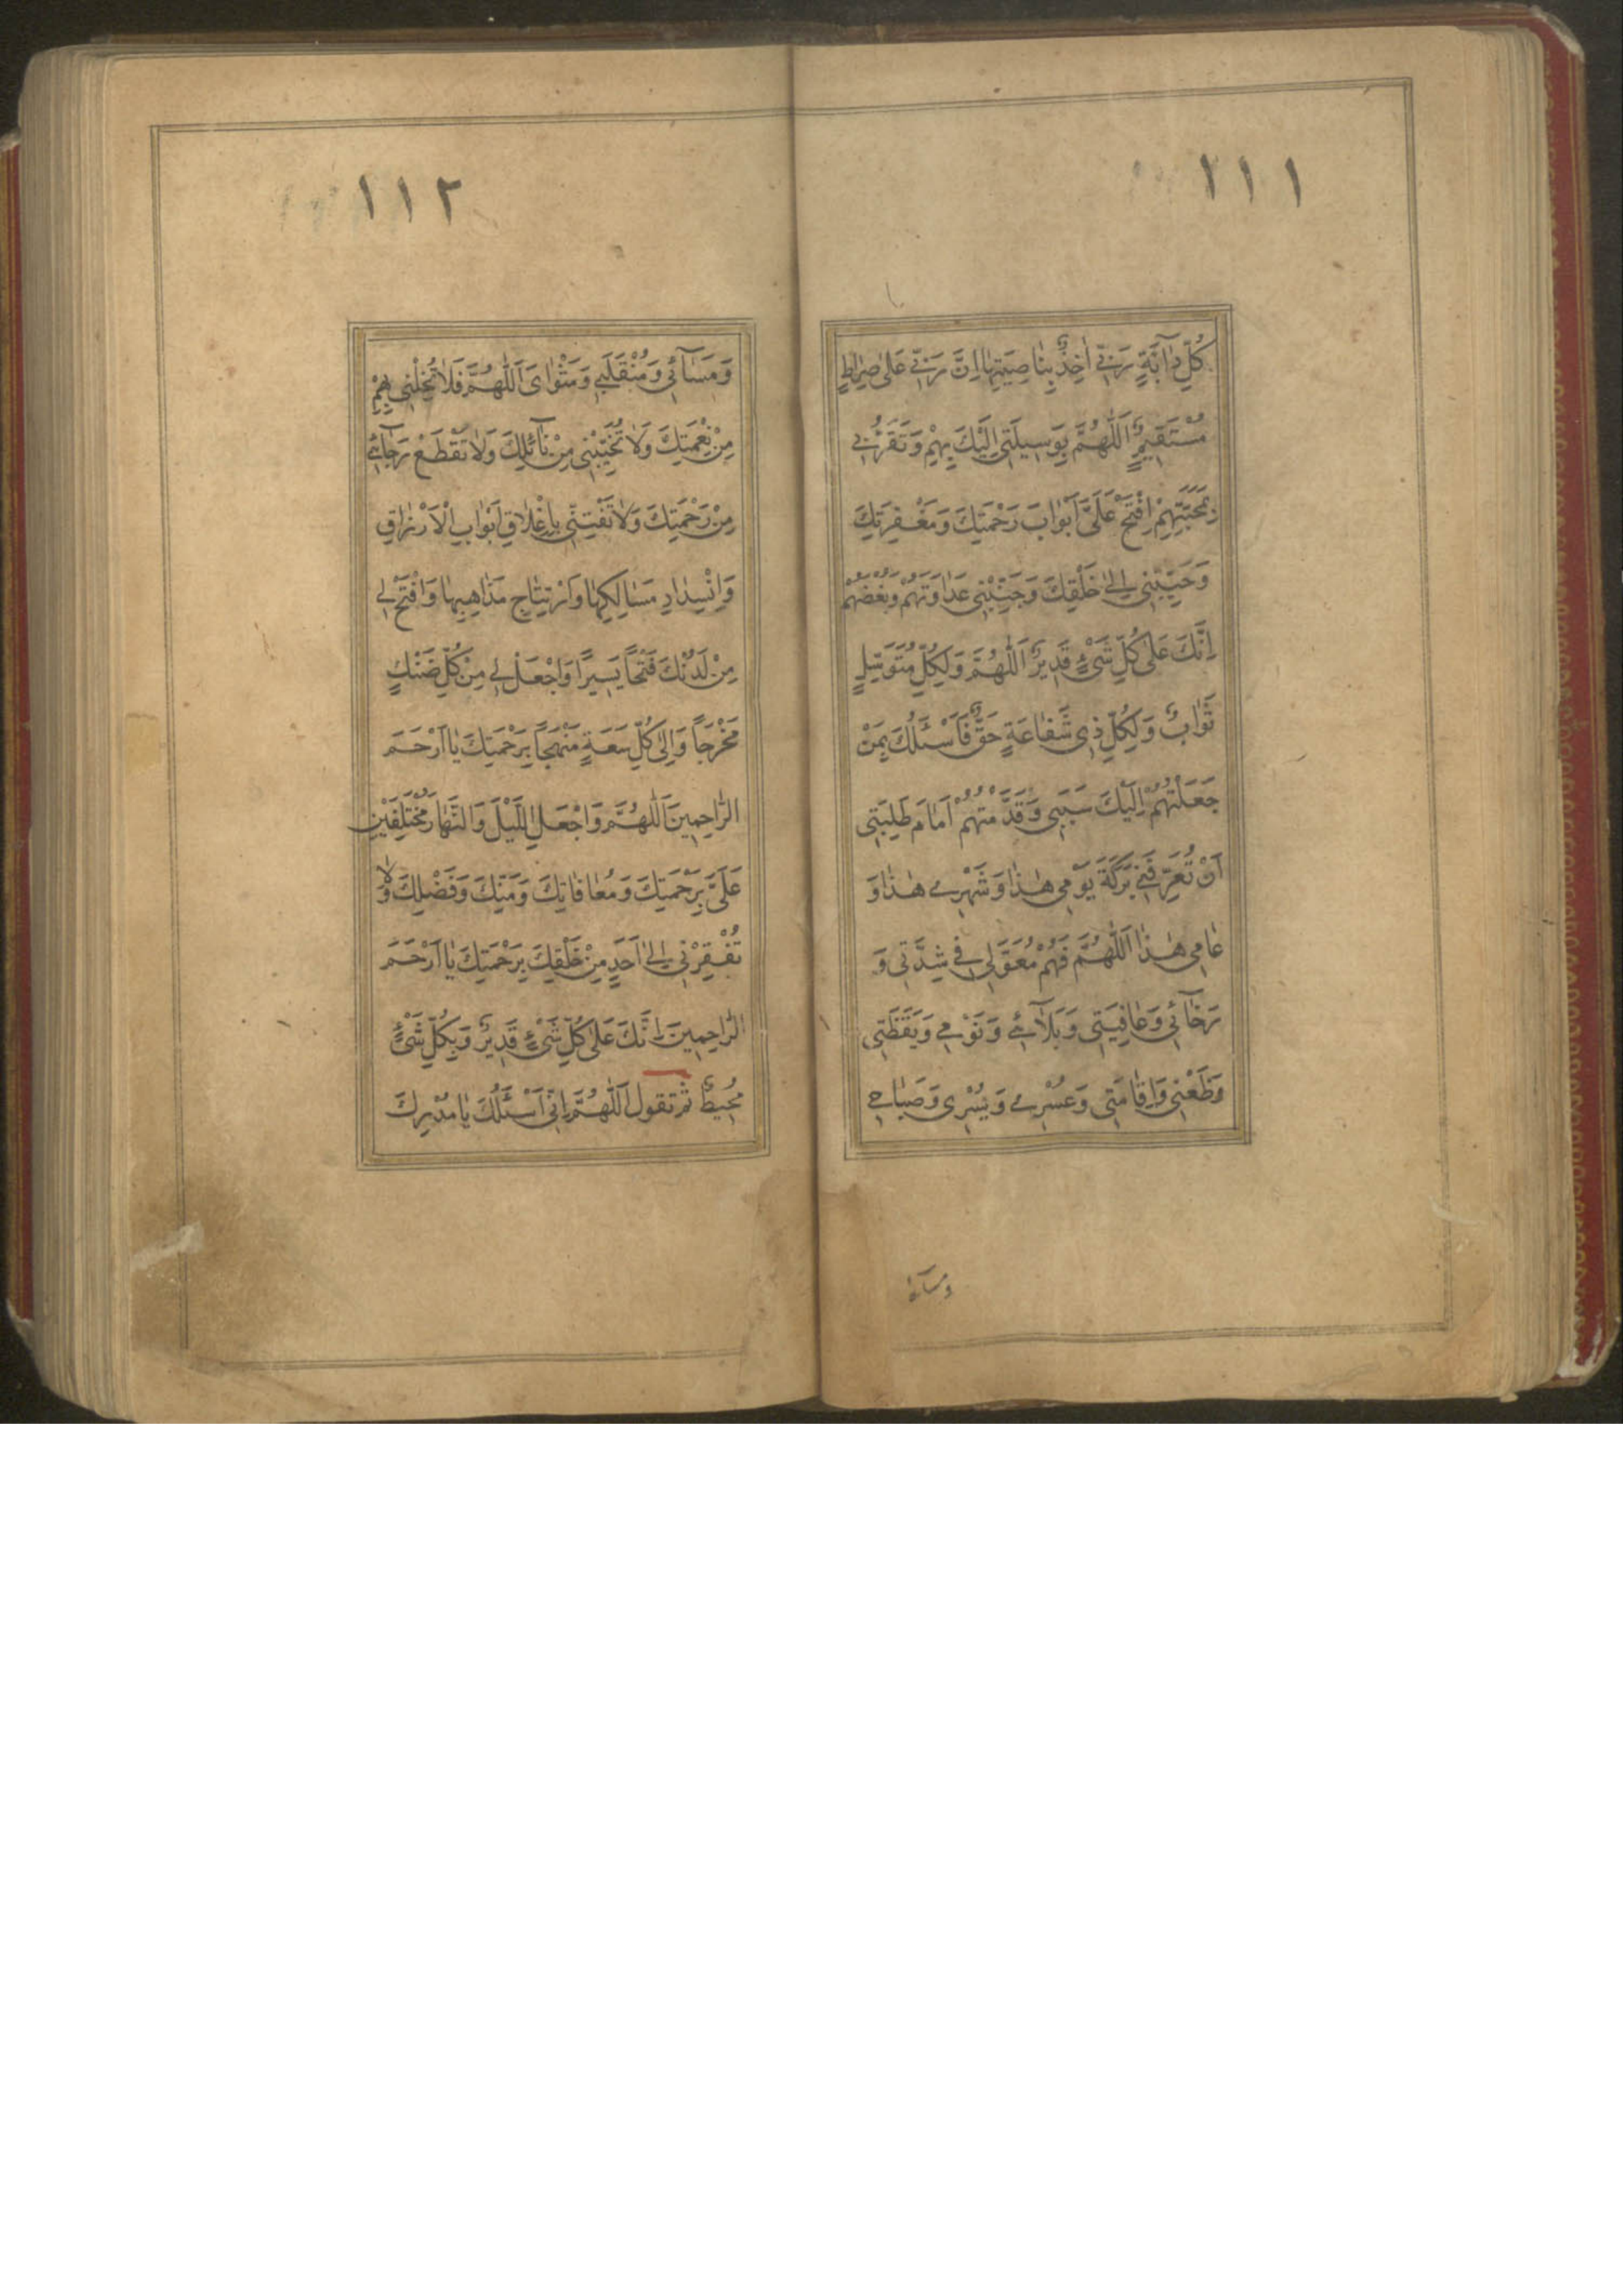 ١١١
كُلِّ دٰآبَّةٍ رَبّي اٰخِذٌ بِنٰاصِيَتِهٰا اِنَّ رَبّي عَلىٰ صِرٰاطٍ
مُسْتَقيمٍ اَللّٰهُمَّ بِوَسيلَتي اِلَيْكَ بِهِمْ وَتَقَرُّبي
بِمَحَبَّتِهِمْ اِفْتَحْ عَلَيَّ اَبْوٰابَ رَحْمَتِكَ وَمَغْفِرَتِكَ
وَحَبِّبْني اِلىٰ خَلْقِكَ وَجَنِّبْني عَدٰاوَتَهُمْ وَبُغْضَهُمْ
اِنَّكَ عَلىٰ كُلِّ شَيْءٍ قَديرٌ اَللّٰهُمَّ وَلِكُلِّ مُتَوَسِّلٍ
ثَوٰابٌ وَلِكُلِّ ذي شَفٰاعَةٍ حَقٌّ فَاَسْئَلُكَ بِمَنْ
جَعَلْتَهُمْ اِلَيْكَ سَبَبي وَقَدَّمْتُهُمْ اَمٰامَ طَلِبَتي
اَنْ تُعَرِّفَني بَرَكَةَ يَوْمي هٰذٰا وَشَهْري هٰذٰا وَ
عٰامي هٰذٰا اَللّٰهُمَّ فَهُمْ مُعَوَّلي في شِدَّتي وَ
رَخٰآئي وَعٰافِيَتي وَبَلٰآئي وَنَوْمي وَيَقَظَتي
وَظَعْني وَاِقٰامَتي وَعُسْري وَيُسْري وَصَبٰاحي
ومسآئی
١١٢
وَمَسٰآئي وَمُنْقَلَبي وَمَثْوٰاىَ اَللّٰهُمَّ فَلٰا تُخْلِني بِهِمْ
مِنْ نِعْمَتِكَ وَلٰا تُخَيِّبْني مِنْ نٰآئِلِكَ وَلٰا تَقْطَعْ رَجٰآئي
مِنْ رَحْمَتِكَ وَلٰا تَفْتِنّي بِاِغْلٰاقِ اَبْوٰابِ الْاَرْزٰاقِ
وَانْسِدٰادِ مَسٰالِكِهٰا وَارْتِتٰاجِ مَذٰاهِبِهٰا وَافْتَحْ لي
مِنْ لَدُنْكَ فَتْحاً يَسيرًا وَاجْعَلْ لي مِنْ كُلِّ ضَنْكٍ
مَخْرَجاً وَاِلىٰ كُلِّ سَعَةٍ مَنْهَجاً بِرَحْمَتِكَ يٰا اَرْحَمَ
الرّٰاحِمينَ اَللّٰهُمَّ وَاجْعَلِ اللَّيْلَ وَالنَّهٰارَ مُخْتَلِفَيْنِ
عَلَيَّ بِرَحْمَتِكَ وَمُعٰافٰاتِكَ وَمَنِّكَ وَفَضْلِكَ وَلٰا
تُفْقِرْني اِلىٰ اَحَدٍ مِنْ خَلْقِكَ بِرَحْمَتِكَ يٰا اَرْحَمَ
الرّٰاحِمينَ اِنَّكَ عَلىٰ كُلِّ شَيْءٍ قَديرٌ وَبِكُلِّ شَيْءٍ
مُحيطٌ ثم تقول اَللّٰهُمَّ اِنّي اَسْئَلُكَ يٰا مُدْرِكَ